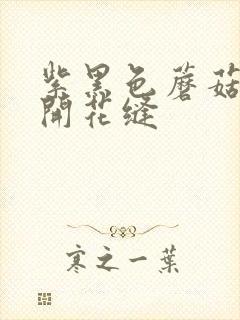 紫黑色蘑菇
開花缝
寒之一葉